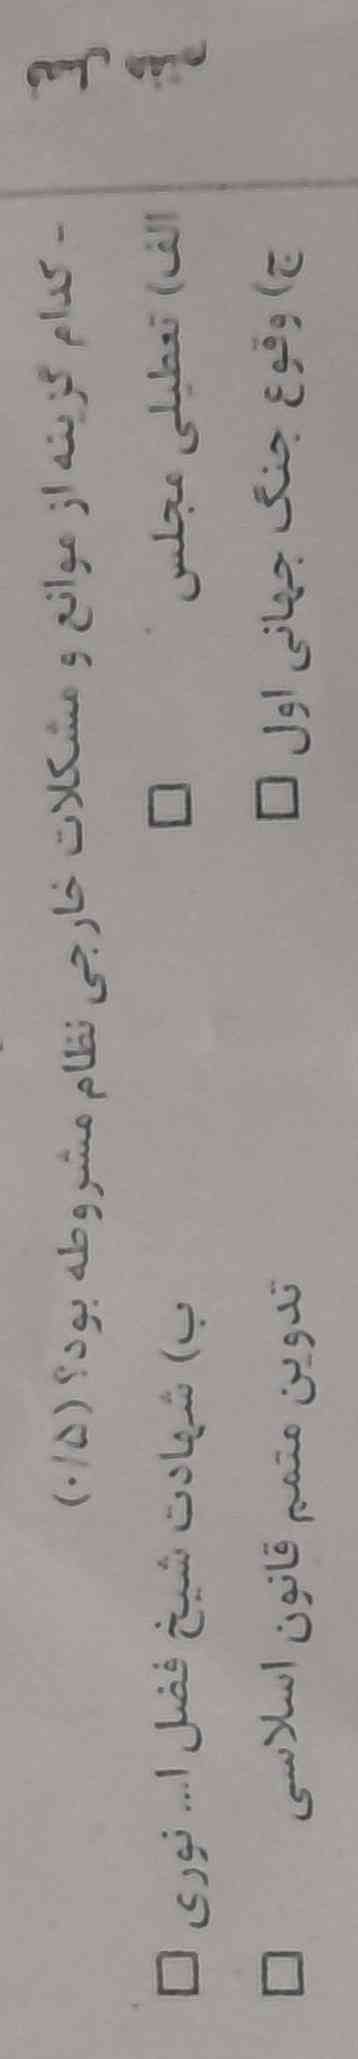 - کدام گزینه از موانع و مشکلات خارجی نظام مشروطه بود؟ (۰/۵)
الف) تعطیلی مجلس □ ب) شهادت شیخ فضل ا... نوری □
ج) وقوع جنگ جهانی اول □ تدوین متمم قانون اسلاسی □